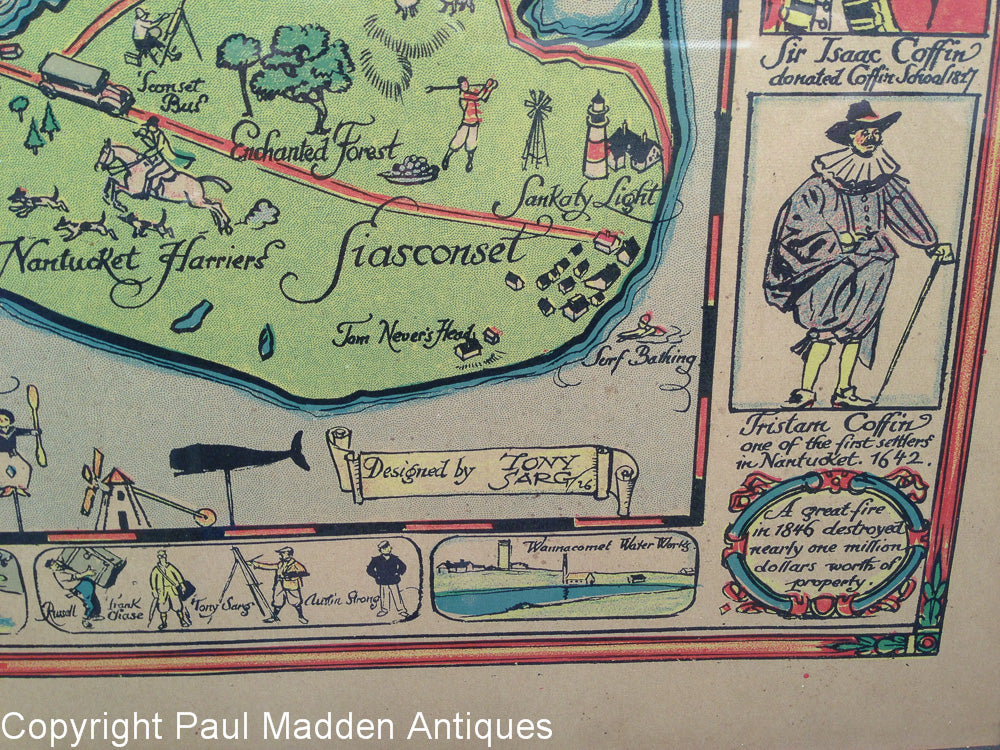 Sir Isaac Coffin
donated Coffin School 1827
'Sconset
Bus
Enchanted Forest
Sankaty Light
Nantucket Harriers
Siasconset
Tom Never's Head
Surf Bathing
Tristam Coffin
one of the first settlers
in Nantucket. 1642.
Designed by TONY
SARG /26
A great fire
in 1846 destroyed
nearly one million
dollars worth of
property.
Russell
Frank
Chase
"Tony" Sarg
Austin Strong
Wannacomet Water Works
Copyright Paul Madden Antiques